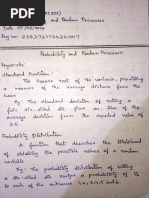 and Random Processes
Date: 05/02/2024
Probability and Random Processes:
Keywords:
Standard Deviation:
The square root of the variance, providing
a measure of the average distance from the
mean.
Eg: The standard deviation of rolling a
fair six-sided die gives us an idea of the
average distance from the expected value of
3.5.
Probability Distribution:
A function that describes the likelihood
of obtaining the possible values of a random
variable.
Eg: The probability distribution of rolling
a six-sided die assigned a probability of 1/6
to each of the outcomes 1,2,3,4,5 and 6.